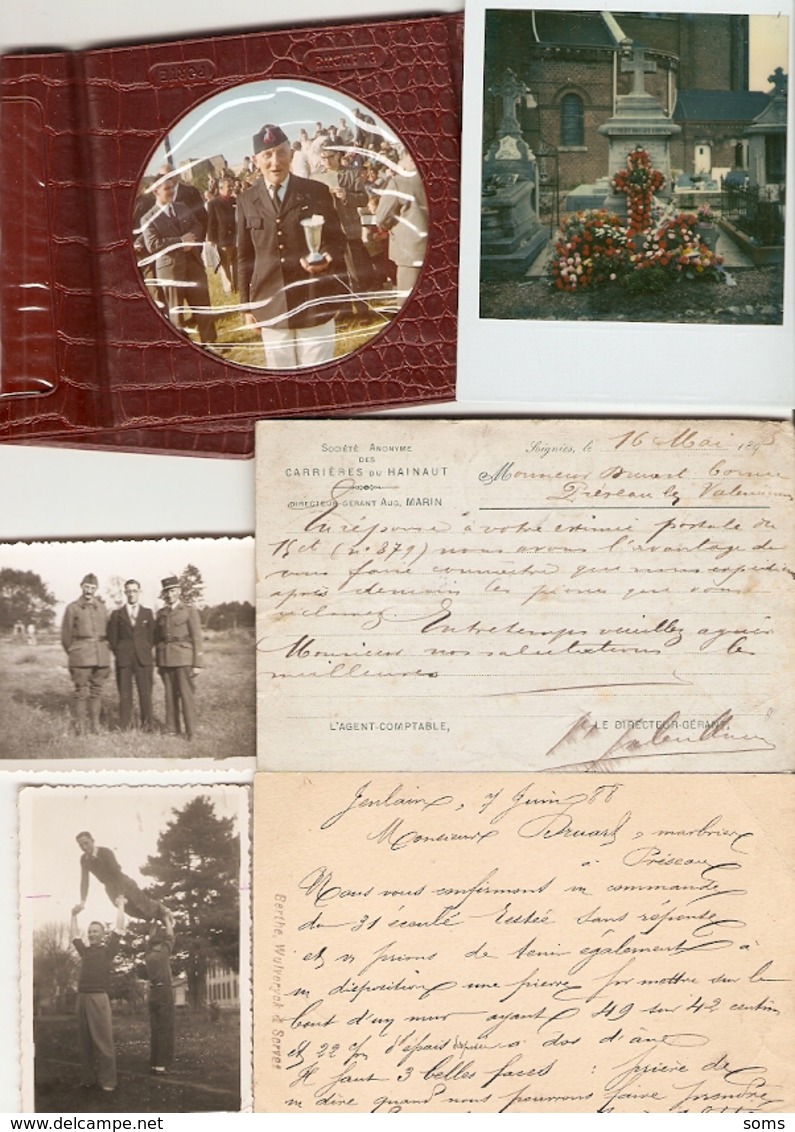 SOCIÉTÉ ANONYME
DES
CARRIÈRES DU HAINAUT
DIRECTEUR-GÉRANT AUG. MARIN
Soignies, le 16 Mai 189
Monsieur Bruart Cornu
Préseau lez Valenciennes
En réponse à votre estimée postale du
15 ct (n° 379) nous avons l'avantage de
vous faire connaitre que nous expédions
après demain les pierres que vous
réclamez. Entretemps veuillez agréer
Monsieur nos salutations les
meilleures
L'AGENT-COMPTABLE,
LE DIRECTEUR-GÉRANT,
Jenlain, 7 Juin 88
Monsieur Bruart, marbrier
à Préseau
Nous vous confirmons n commande
du 31 écoulé restée sans réponse
et vs prions de tenir également à
n disposition une pierre pr mettre sur le
bout d'un mur ayant 49 sur 42 centim
et 22 c/m d'épais à dos d'âne
Il faut 3 belles faces : prière de
n dire quand nous pourrons faire prendre
Berthe, Wulveryck & Servet
soms